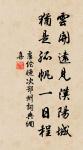 雲開遠見漢陽城
猶是孤帆一日程
盧綸晚次鄂州詞典網
集